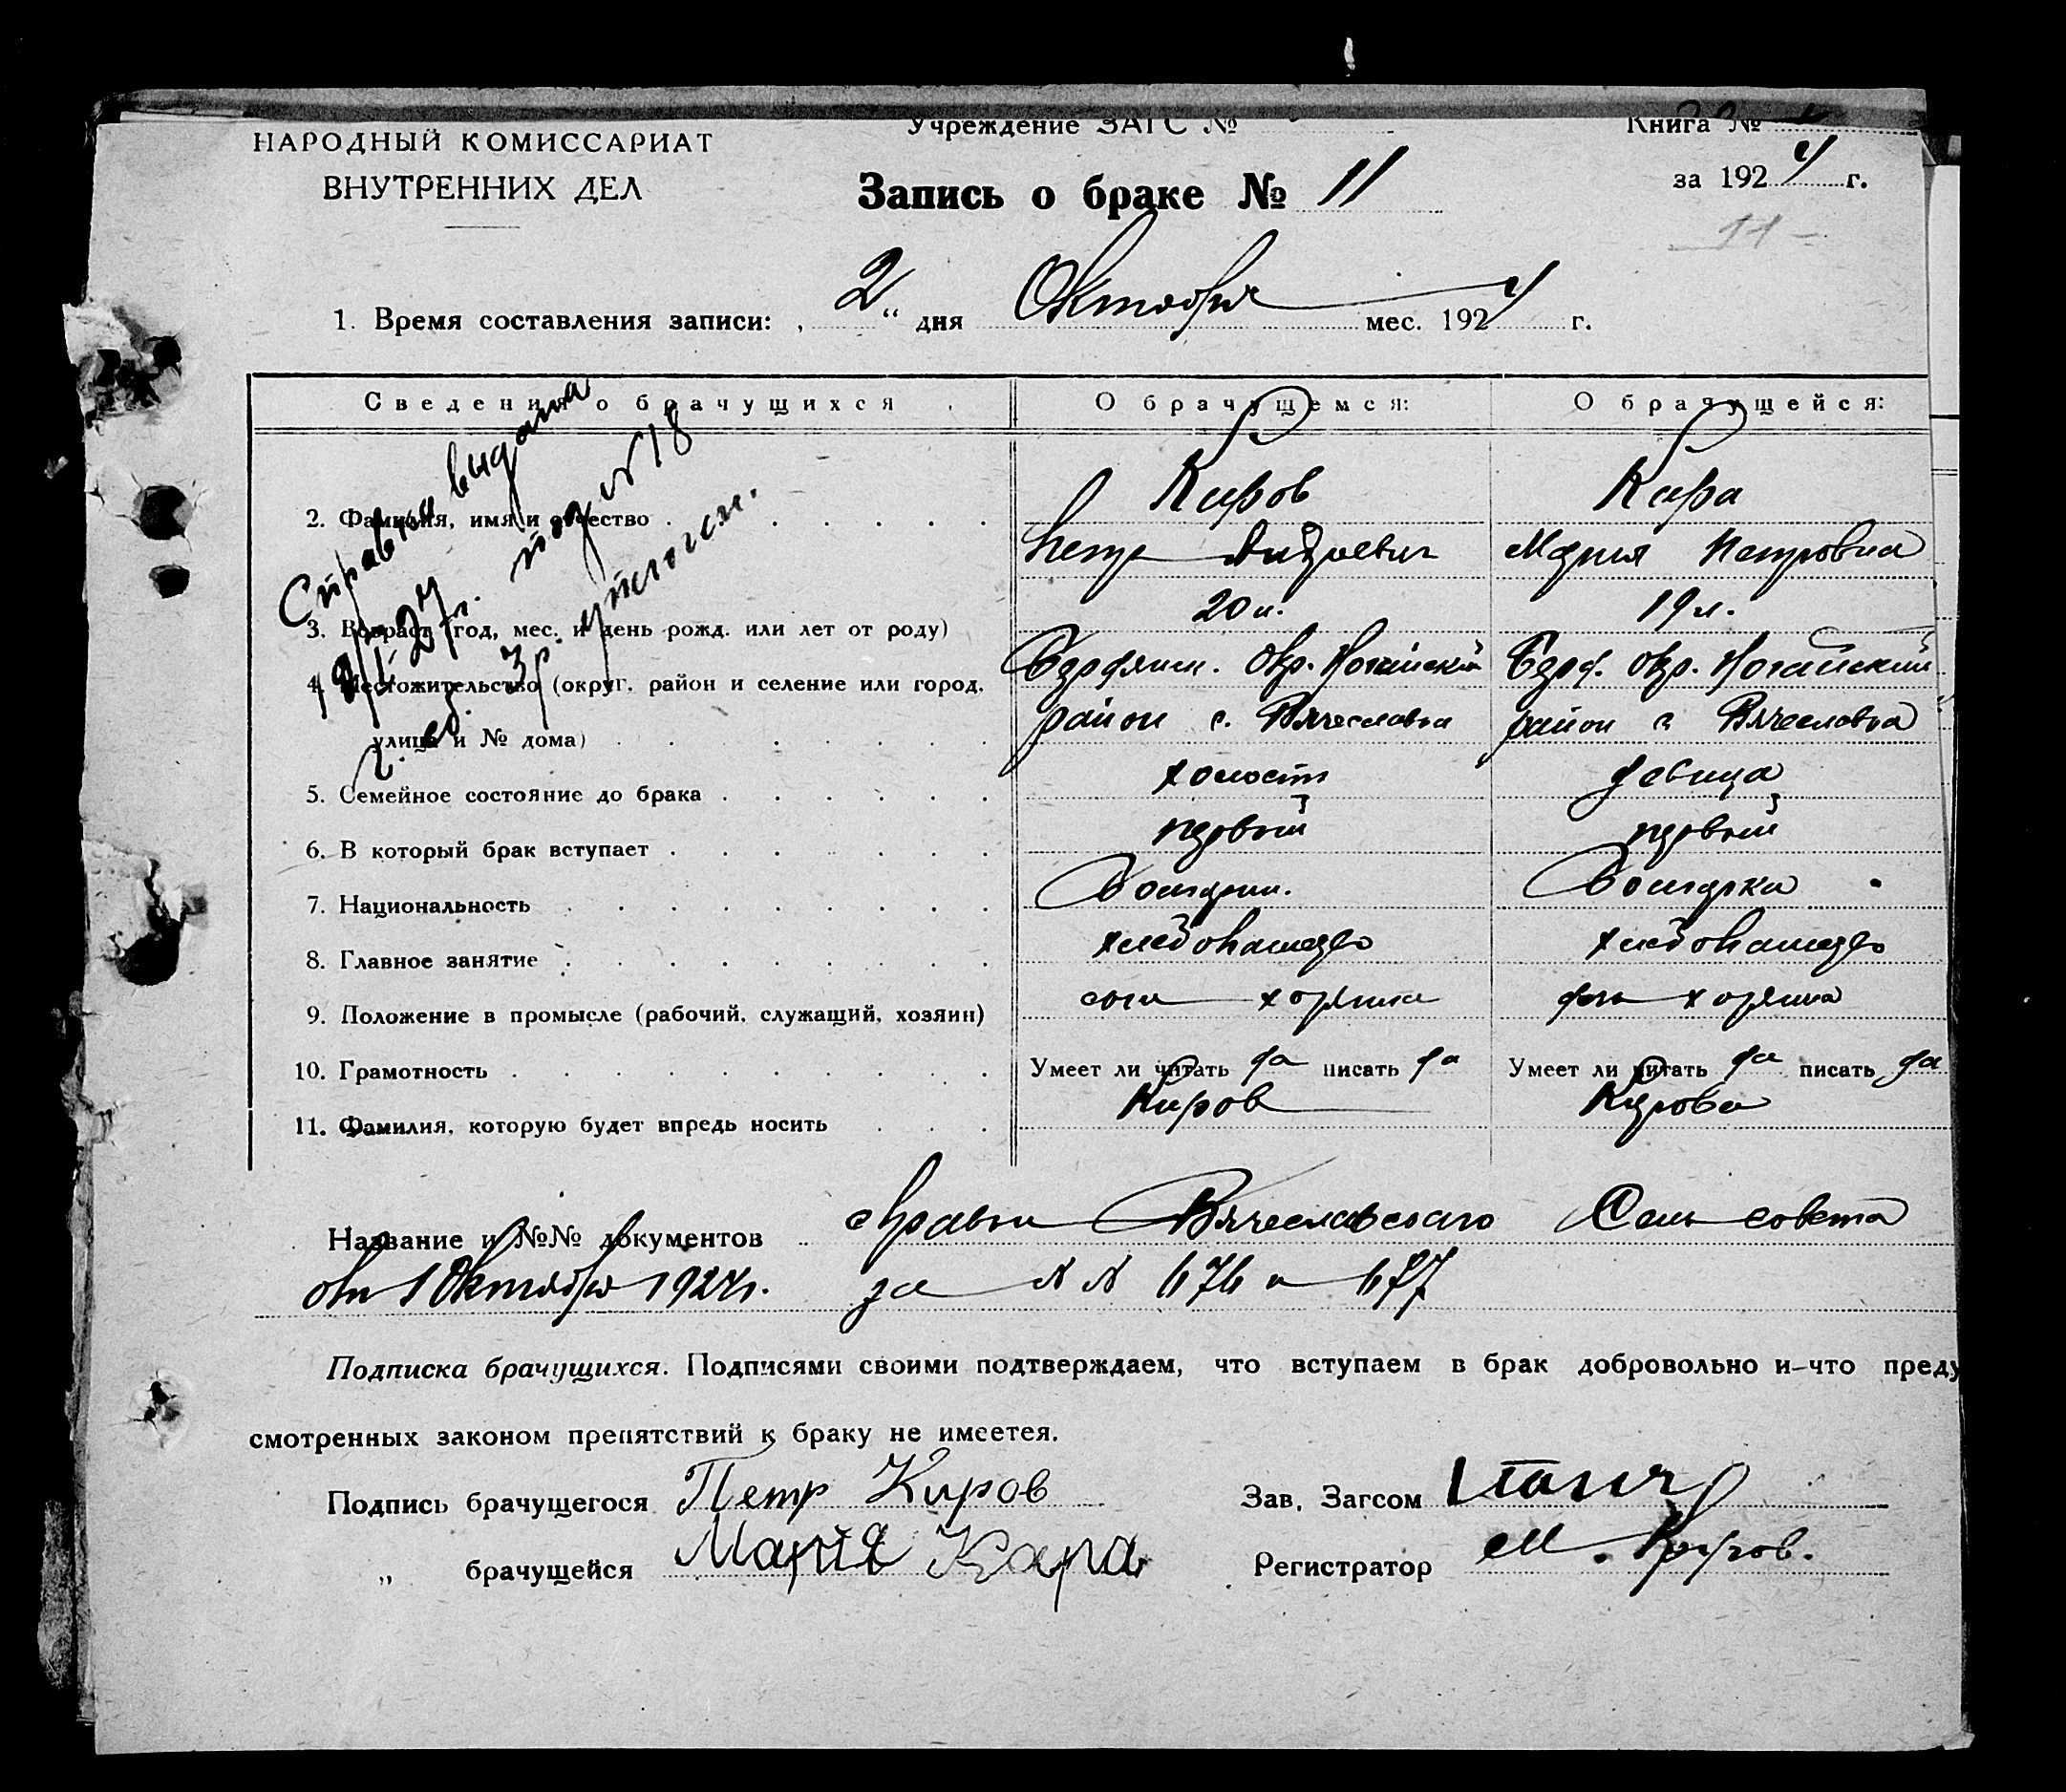 НАРОДНЫЙ КОМИССАРИАТ
ВНУТРЕННИХ ДЕЛ
Учреждение ЗАГС №
Книга №
за 1924 г.
Запись о браке № 11
11
1. Время составления записи: „ 2 “ дня Октября мес. 1924 г.
Сведения о брачущихся
О брачущемся:
О брачущейся:
Справка выдана
19/I-27 г. под № 18
2. Фамилия, имя и отчество
Киров
Петр Андреевич
Кара
Мария Петровна
3. Возраст (год, мес. и день рожд. или лет от роду)
20 л.
19 л.
4. Местожительство (округ, район и селение или город,
улица и № дома)
Бердянск. Окр. Ногайский
район с. Вячеславка
Берд. Окр. Ногайский
район с. Вячеславка
5. Семейное состояние до брака
холост
девица
6. В который брак вступает
первый
первый
7. Национальность
Болгарин.
Болгарка
8. Главное занятие
хлебопашество
хлебопашество
9. Положение в промысле (рабочий, служащий, хозяин)
сын хозяина
дочь хозяина
10. Грамотность
Умеет ли читать да писать да
Умеет ли читать да писать да
11. Фамилия, которую будет впредь носить
Киров
Кирова
Название и №№ документов справки Вячеславского Сельсовета
от 1 Октября 1924 г. за №№ 676 и 677
Подписка брачущихся. Подписями своими подтверждаем, что вступаем в брак добровольно и что преду
смотренных законом препятствий к браку не имеется.
Подпись брачущегося Петр Киров
Зав. Загсом
„ брачущейся Марія Кара
Регистратор М.